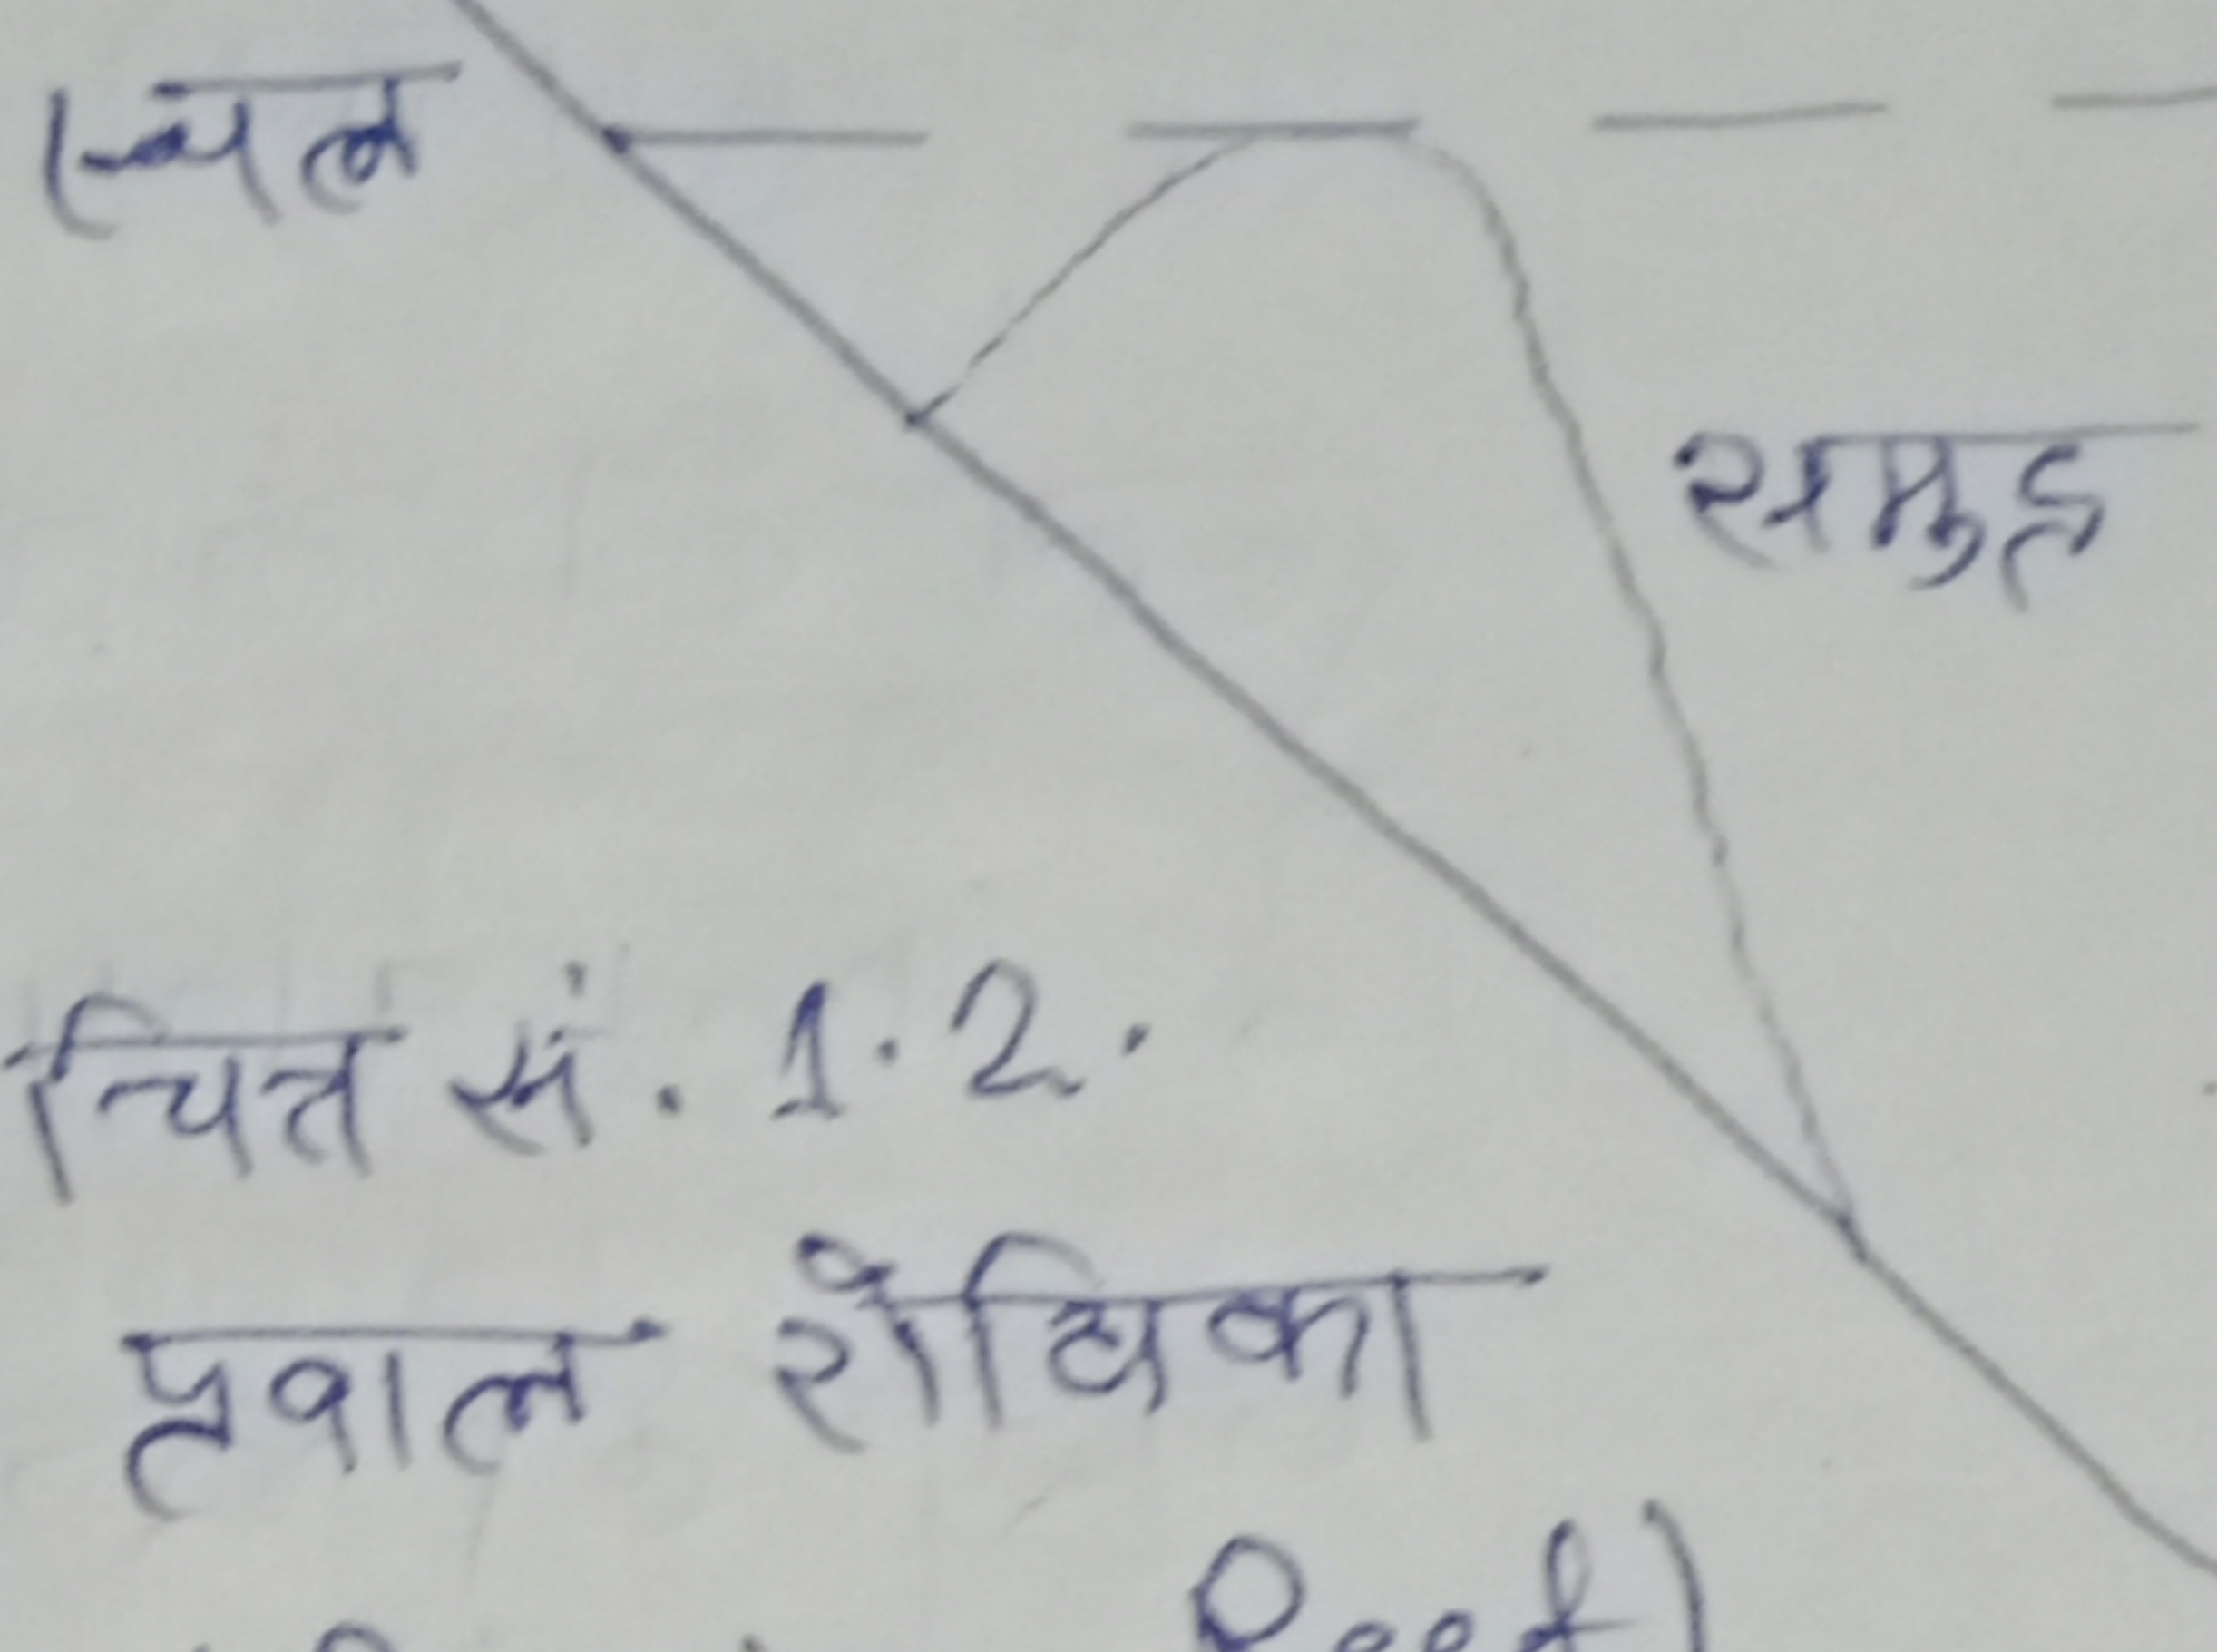 स्थल
समुद्र
चित्र सं. 1.2.
प्रवाल रोधिका
Reef)